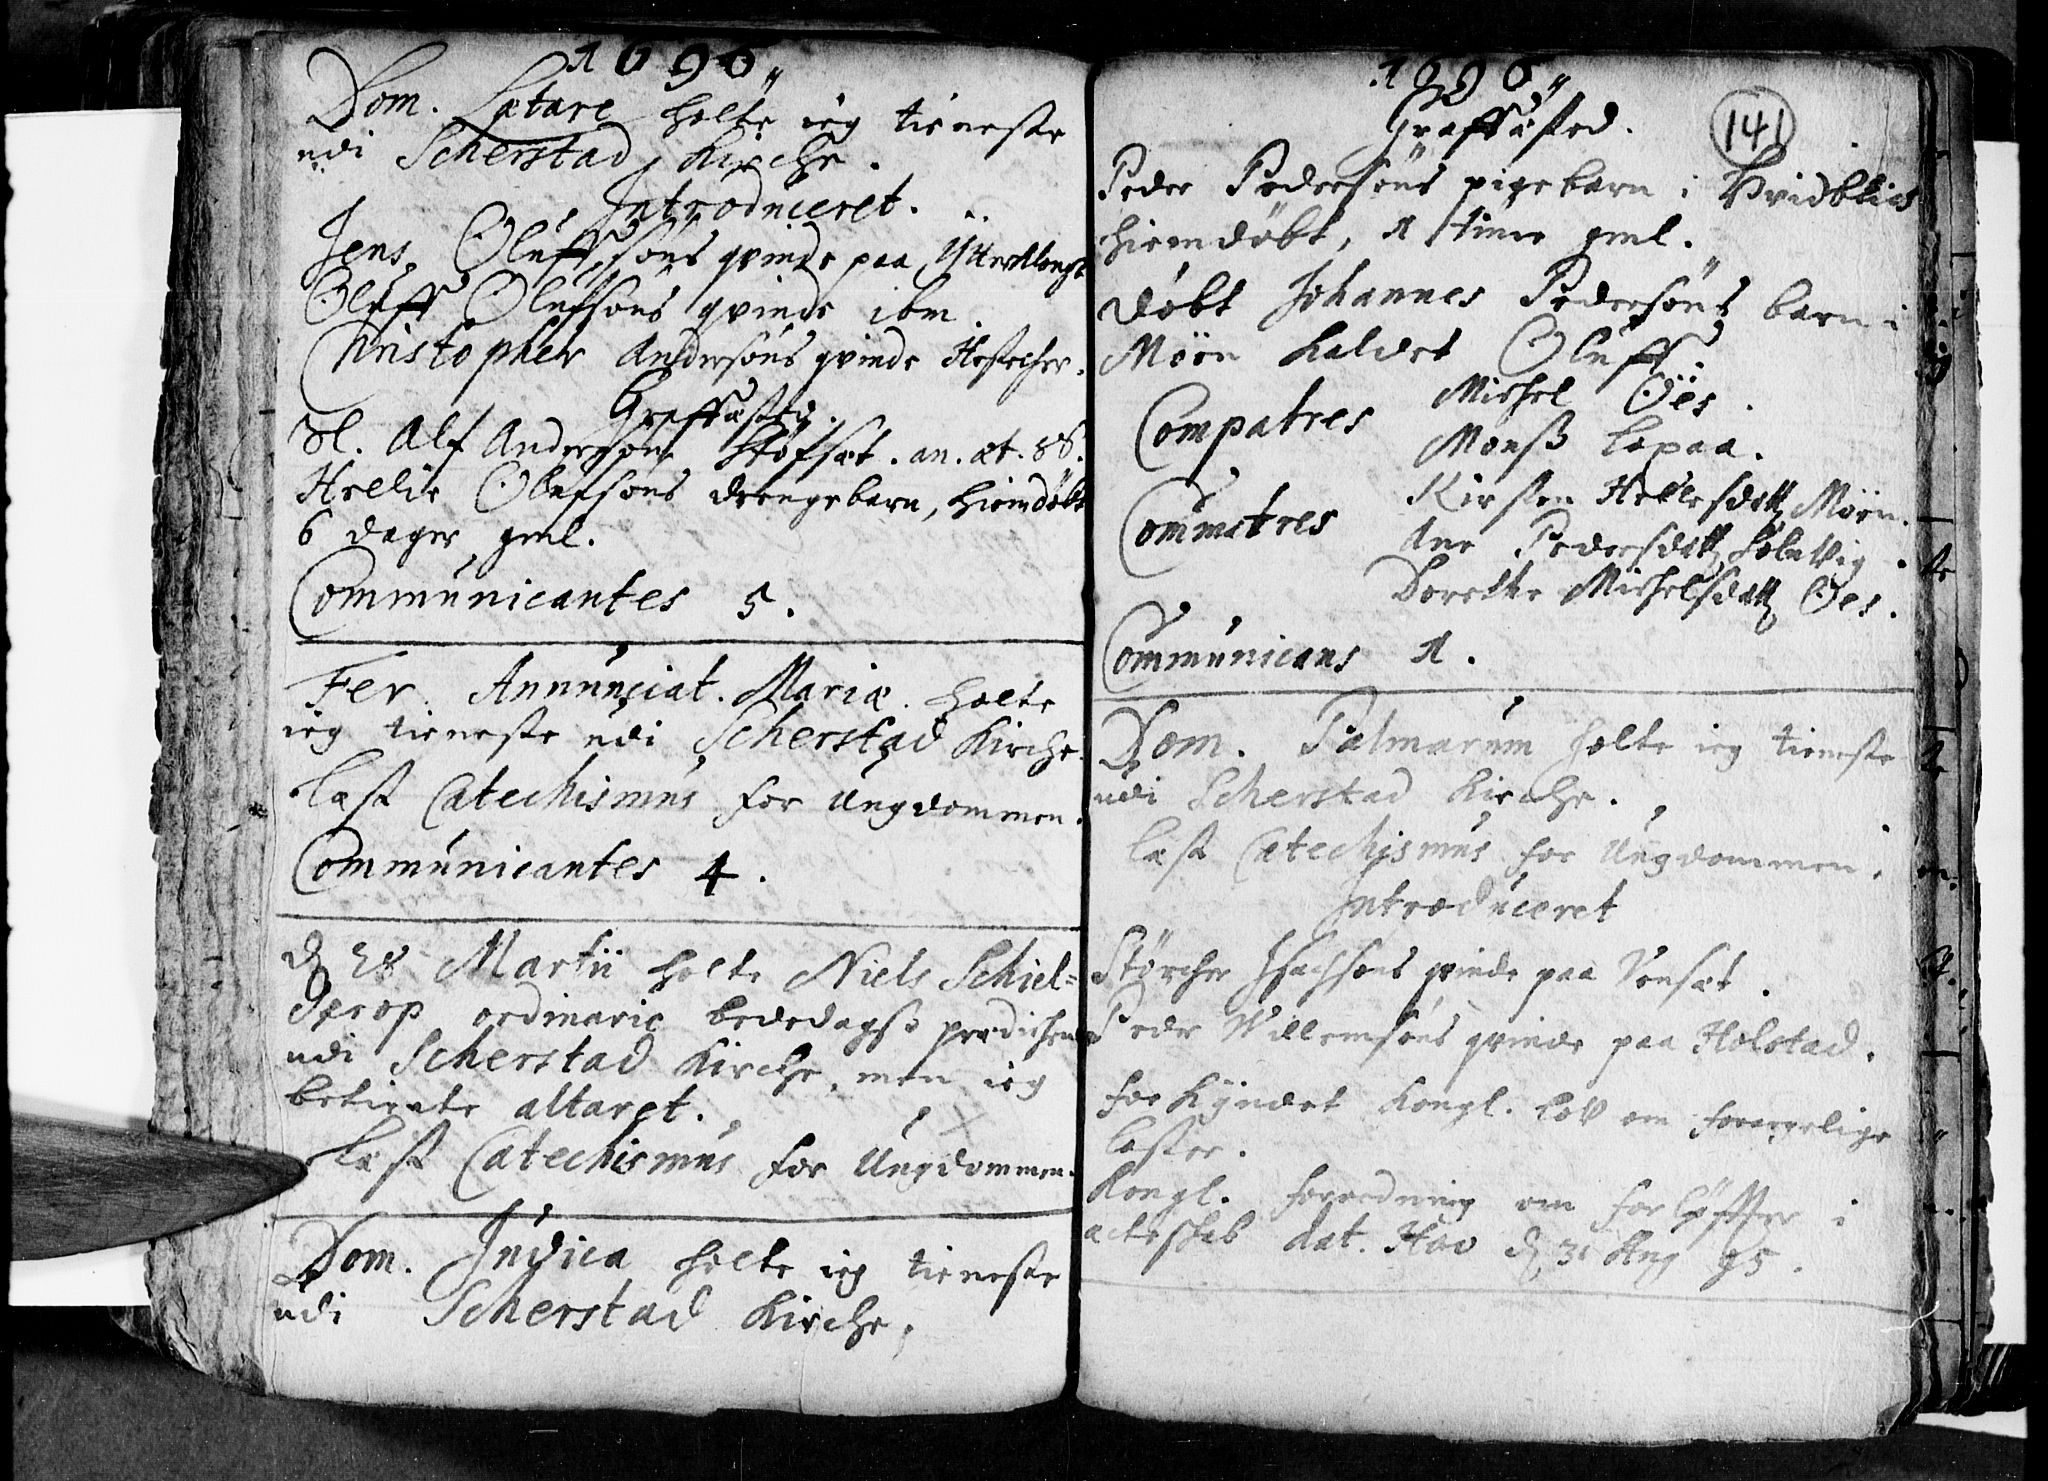 1696
Dom. Lætare holte ieg tieneste
udi Scherstad Kirche.
Introduceret.
Jens Oluffsöns qvinde paa
Oluff Olufsöns qvinde ibm
Christopher Andersöns qvinde
Graffæsted.
Sl. Alf Andersön an. æt. 88.
Hellie Olufsöns drengebarn, hiemdöbt
6 dager gml.
Communicantes 5.
Fer. Annunciat. Mariæ holte
ieg tieneste udi Scherstad Kirche.
Læst Catechismus for Ungdommen.
Communicantes 4.
d 28 Martii holte Niels Schiel=
drop ordinarie bededagß prædichen
udi Scherstad Kirche, men ieg
betiente altaret.
Læst Catechismus for Ungdommen.
Dom. Judica holte ieg tieneste
udi Scherstad Kirche.
1696
Graffæsted.
141
Peder Pedersöns pigebarn i
hiemdöbt, 1 time gml.
Döbt Johannes Pedersöns barn i
Möen kaldet Oluff.
Compatres Michel Öes.
Monß Lopaa.
Commatres Kirsten Hellesdatt Möen.
Ane Pedersdatt
Dorethe Michelsdatt Öes.
Communicans 1.
Dom. Palmarum holte ieg tieneste
udi Scherstad Kirche.
Læst Catechismus for Ungdommen.
Introduceret
Störcher Isachsöns qvinde paa Vonsæt.
Peder Willemsöns qvinde paa Holstad.
Forkyndet Kongl. lov om forargelige
laster.
Kongl. forordning om forlöffter i
ecteskab dat. Hav d 31 Aug 95.